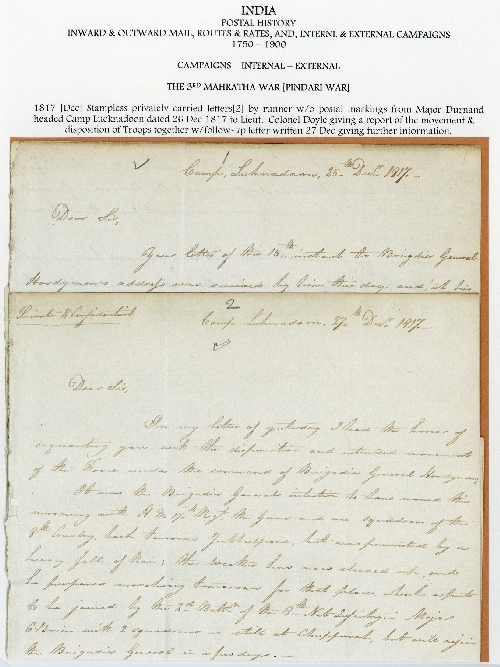 INDIA
POSTAL HISTORY
INWARD & OUTWARD MAIL, ROUTES & RATES, AND, INTERNL & EXTERNAL CAMPAIGNS
1750 – 1900
CAMPAIGNS INTERNAL – EXTERNAL
THE 3RD MAHRATHA WAR [PINDARI WAR]
1817 [Dec] Stampless privately carried letters[2] by runner w/o postal markings from Major Durnand
headed Camp Lucknadoon dated 26 Dec 1817 to Lieut. Colonel Doyle giving a report of the movement &
disposition of Troops together w/follow-up letter written 27 Dec giving further information.
1
Camp, Luknadam, 26th Decr 1817.
Dear Sir,
Your letter of the 15th instant to Brigadier General
Hardyman's address was received by him this day, and at his
2
Private & Confidential
Camp Luknadam, 27th Decr 1817.
Dear Sir,
In my letter of yesterday I had the honor of
acquainting you with the disposition and intended movements
of the Force under the command of Brigadier General Hardyman,
It was the Brigadier General's intention to have moved this
morning with H M 17th Regt the Guns and one squadron of the
8th Cavalry, back towards Jubbulpore, but was prevented by a
heavy fall of Rain; the weather has now cleared up, and
he purposes marching tomorrow for that place, where he expects
to be joined by the 2d Battn of the 8th Nat. Infantry. Major
O'Brien with 2 squadrons is still at Chupparah, but will rejoin
the Brigadier General in a few days.